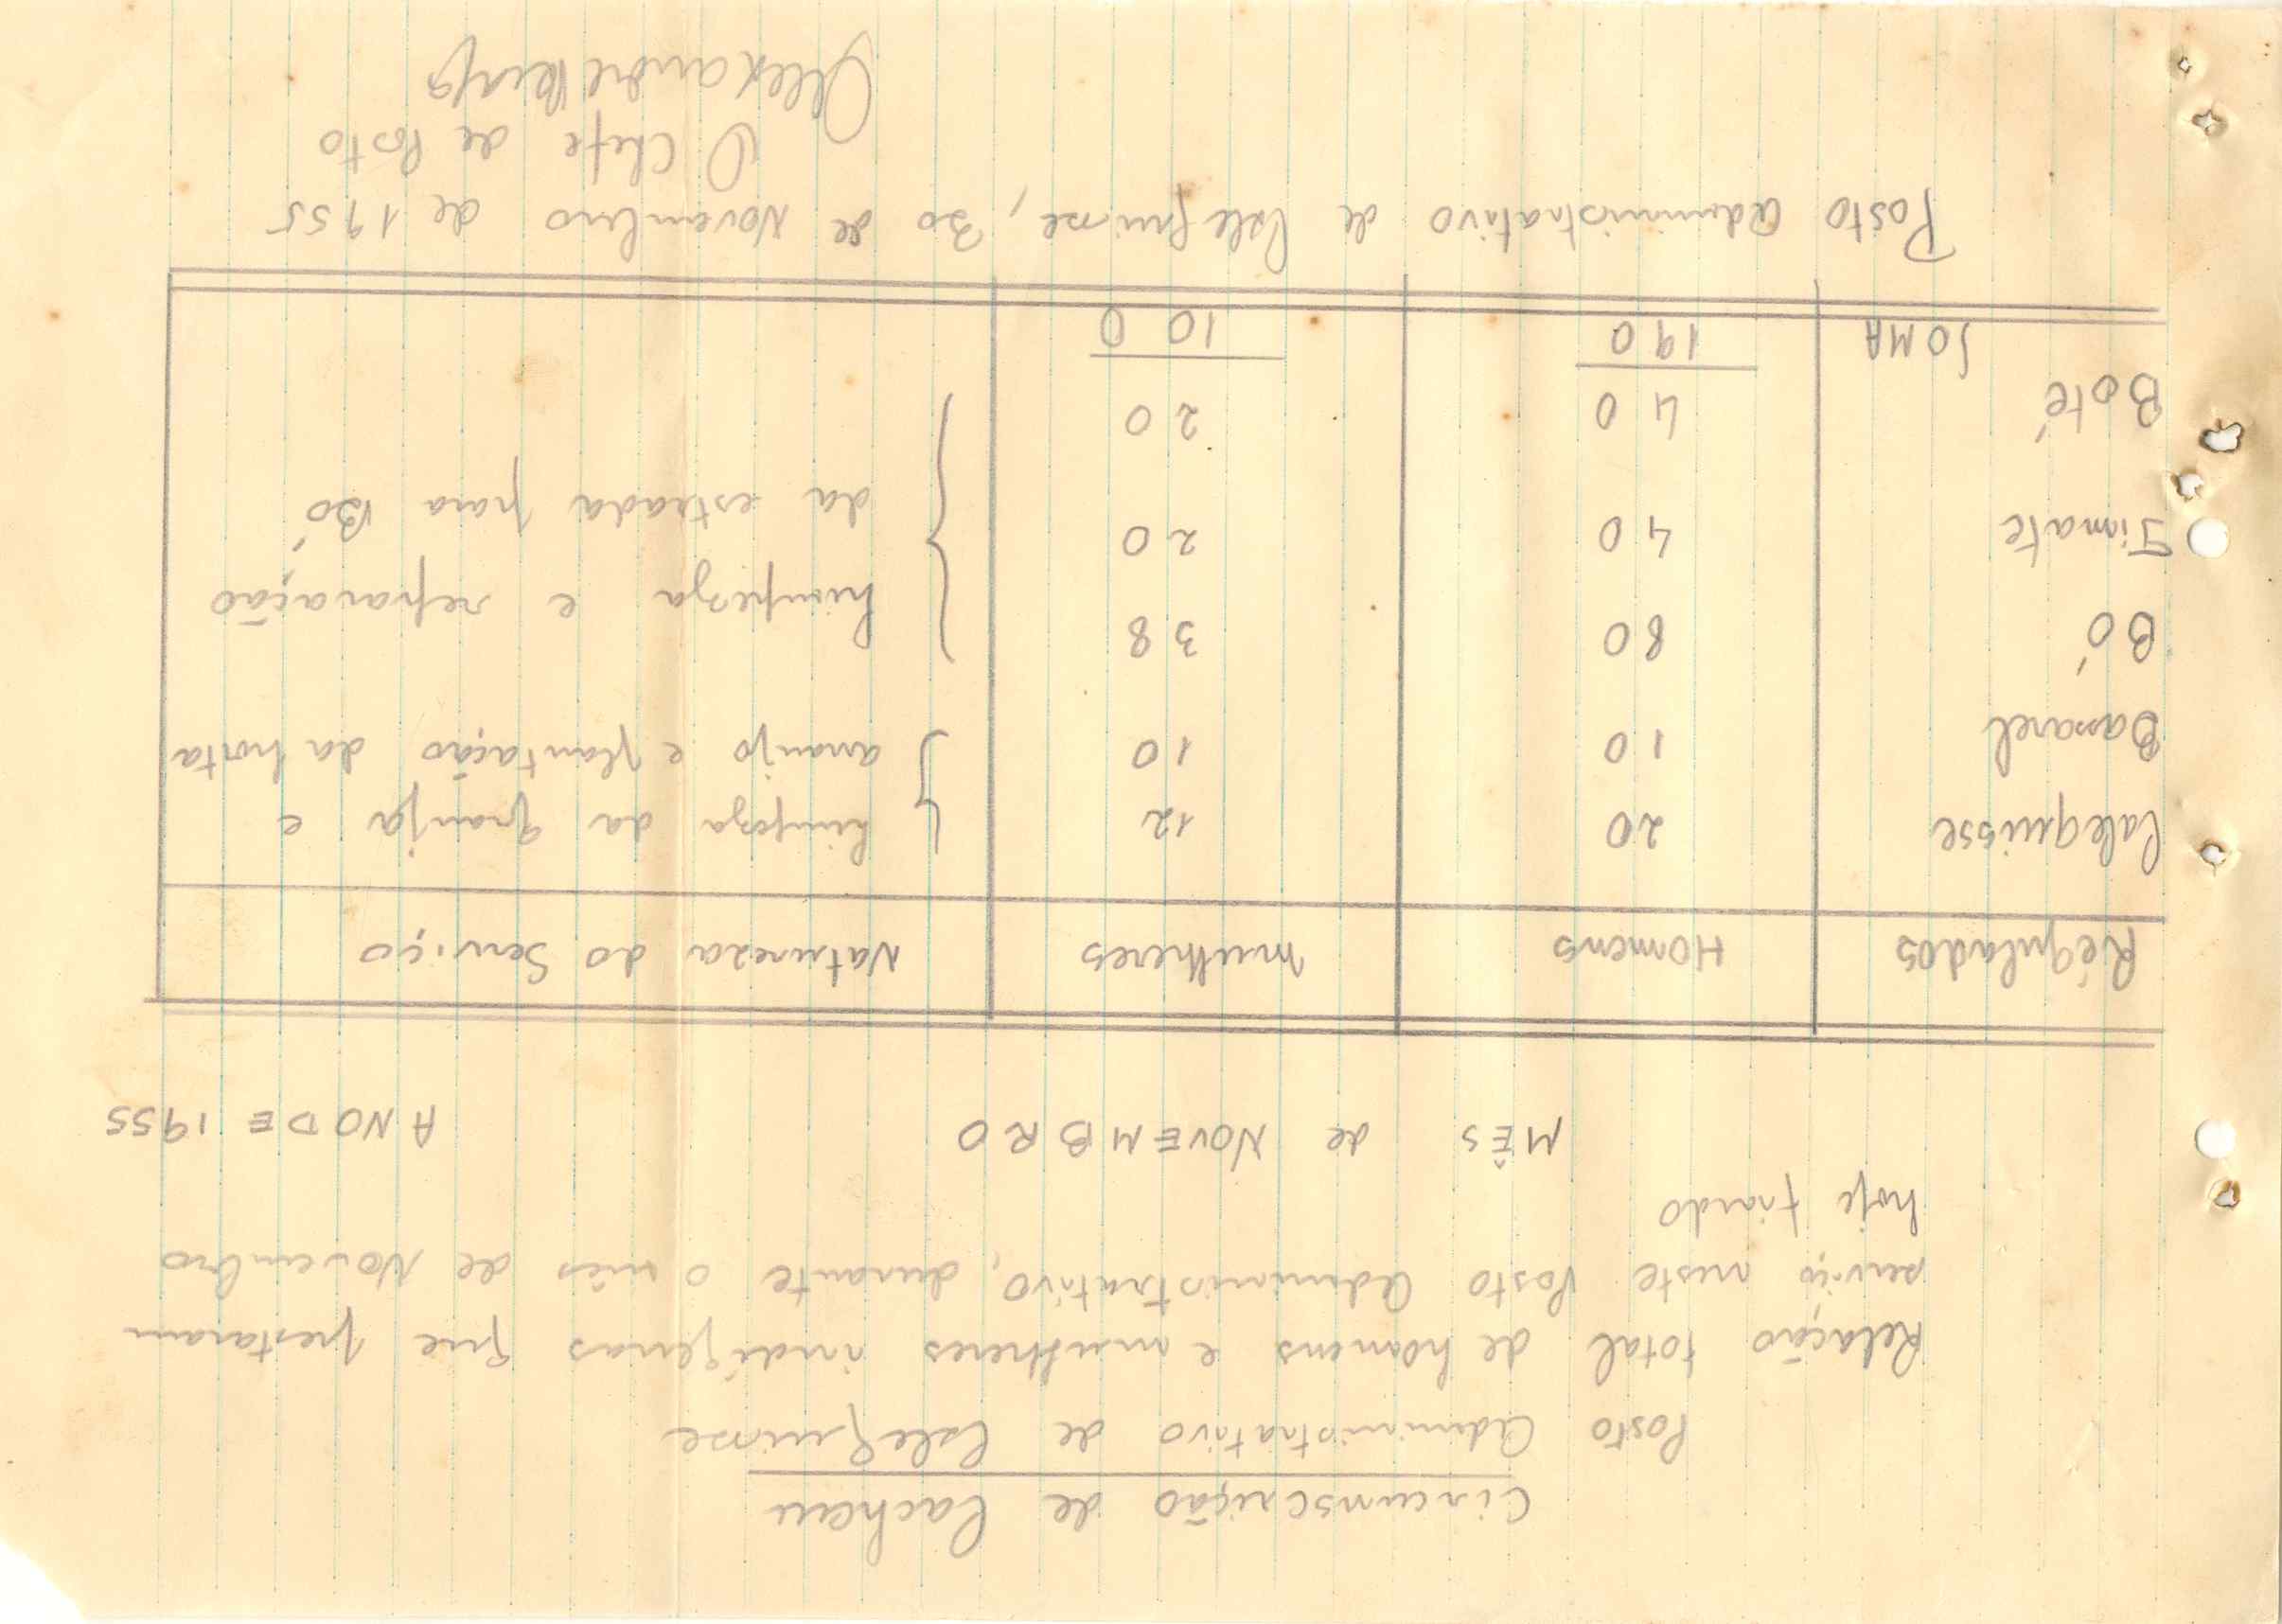 Circunscrição de Cacheu
Posto Administrativo de Calequisse
Relação total de homens e mulheres indígenas que prestaram
serviço neste Posto Administrativo, durante o mês de Novembro
hoje findo
MÊS de NOVEMBRO ANO DE 1955
Régulados Homens Mulheres Natureza do Serviço
Calequisse 20 12 Limpeza da granja e
Bassarel 10 10 arranjo e plantação da horta
Bó 80 38 Limpeza e reparação
Timate 40 20 da estrada para Bó
Boté 40 20
SOMA 190 100
Posto Administrativo de Calequisse, 30 de Novembro de 1955
O Chefe de Posto
Alexandre